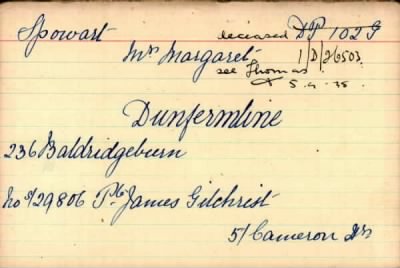 Spowart deceased DP 102 G
Mrs Margaret 1/D/26503
see Thomas
5.4.35
Dunfermline
236 Baldridgeburn
No S/29806 Pte James Gilchrist
5/Cameron Hrs